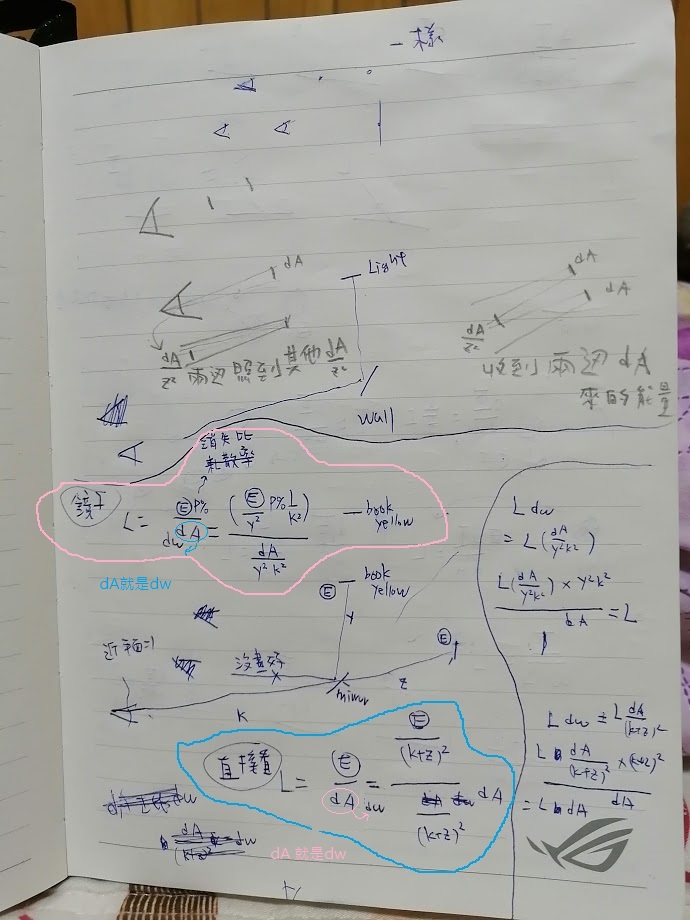 一樣
Light
dA
dA
dA
dA/z² 兩迎照到其他 dA/z²
dA/z²
收到兩迎 dA
來的能量
wall
消失比
鏡子
L = Ⓔ P% / dA = (Ⓔ/y² P% L/k²) / (dA / y² k²)
dw
book
yellow
dA就是dw
Ⓔ
book
yellow
y
Ⓔ
近平面=1
沒畫好
mirror
z
k
直接看
L = Ⓔ / dA = (Ⓔ / (k+z)²) / (dA / (k+z)²)
dw
dA 就是dw
L dw
= L (dA / y²k²)
L (dA / y²k²) × y²k² / dA = L
L dw = L dA / (k+z)²
L dA / (k+z)² × (k+z)² / dA
= L